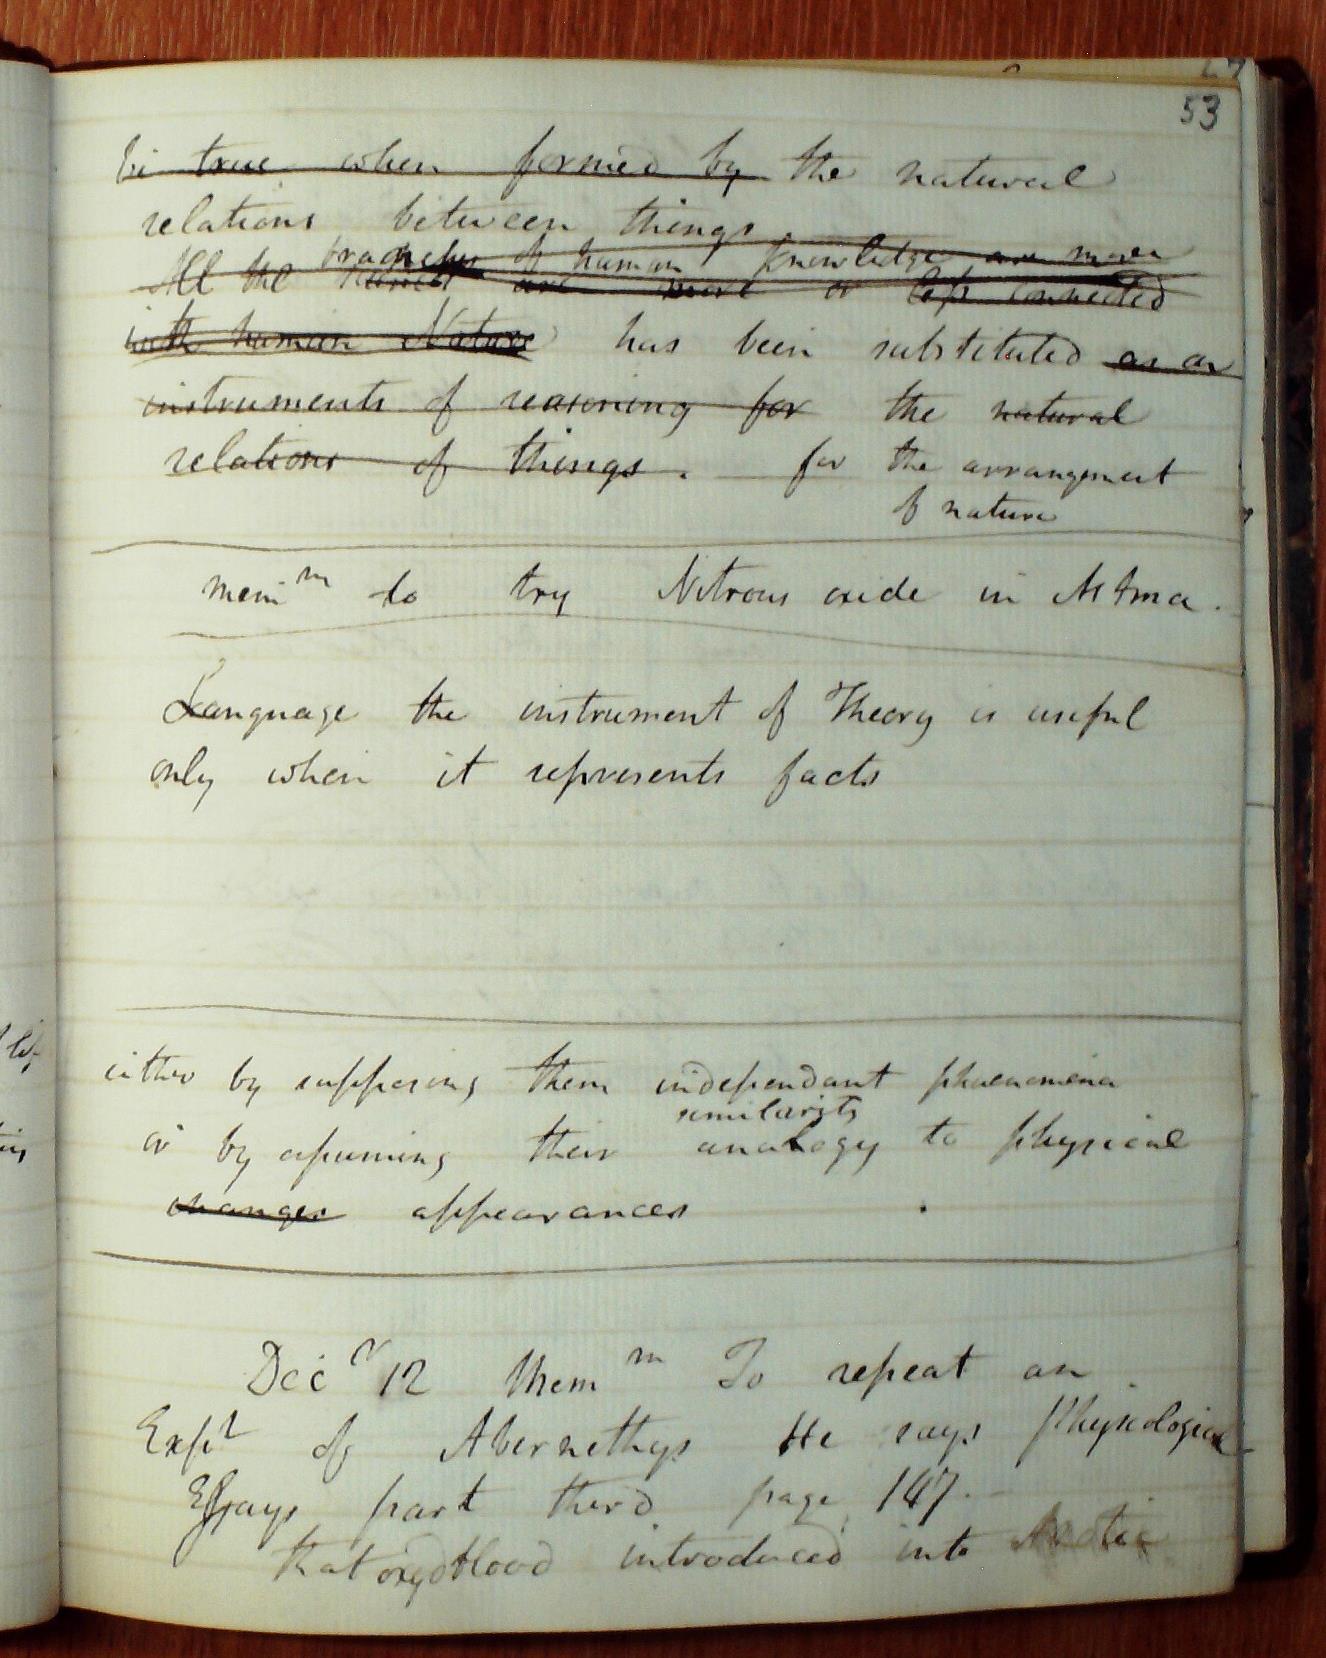 53
be true when formed by the natural
relations between things
branches of human knowledge are more
All the are more or less connected
with human Nature has been substituted as an
instruments of reasoning for the natural
relations of things. for the arrangement
of nature
mem m to try Nitrous oxide in Astma.
Language the instrument of Theory is useful
only when it represents facts
either by supposing them independant phaenomena
similarity
or by assuming their analogy to physical
changes appearances
Dec r 12 Mem m To repeat an
Expt of Abernethys He says Physiological
Essays part third page 147.
that oxyd blood introduced into